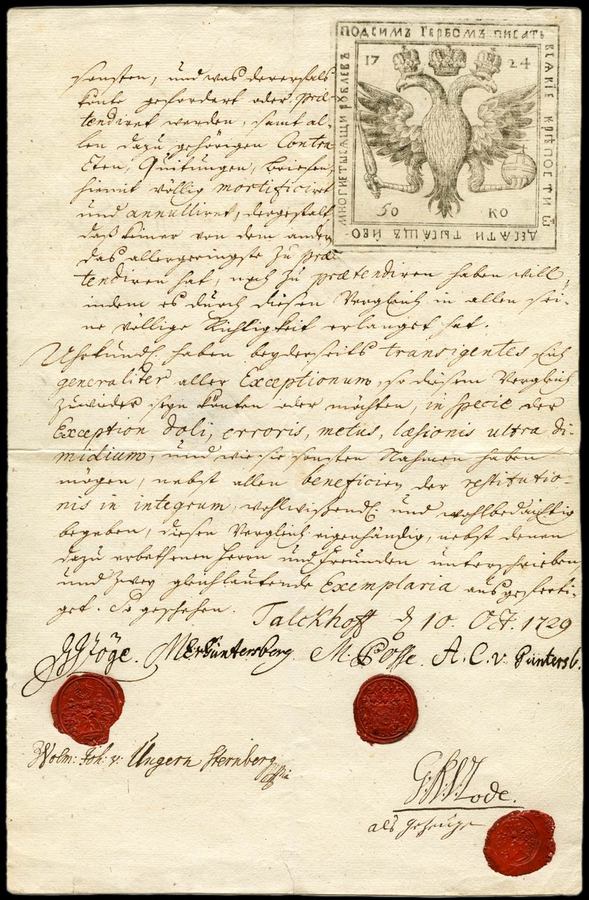 ПОДСИМЪ ГЕРБОМЪ ПИСАТЬ
ВСЯКIЕ КРѢПОСТИ Ѿ
ДЕСЯТИ ТЫСЯЩЬ И ВО
МНОГИЕ ТЫСЯЩИ РУБЛЕВЪ
17 24
50 КО
sonsten, und was derenthalb
könte gefordert oder præ-
tendiret werden, samt al-
len dazu gehörigen Contra-
cten, Quitungen, Briefen,
hiemit völlig mortificiret
und annulliret, dergestalt
daß keiner von dem andern
das allergeringste zu præ-
tendiren hat, noch zu prætendiren haben will,
indem es durch diesen Vergleich in allen sei-
ne völlige Richtigkeit erlanget hat.
Uhrkundl. haben beyderseits transigentes sich
generaliter aller Exceptionum, so diesem Vergleich
zuwider seyn könten oder möchten, in specie der
Exception doli, erroris, metus, læsionis ultra di-
midium, und wie sie sonsten Nahmen haben
mögen, nebst allen beneficien der restitutio-
nis in integrum, wohlwißendl. und wohlbedächtig
begeben, diesen Vergleich eigenhändig, nebst denen
dazu erbethenen Herrn und Freunden unterschrieben
und zwey gleichlautende Exemplaria ausgeferti-
get. So geschehen. Talckhoff d. 10. Oct. 1729
M. Posse. A. C. v. Güntersb.
Wolm: Joh: v: Ungern Sternberg
Lode.
als gezeuge